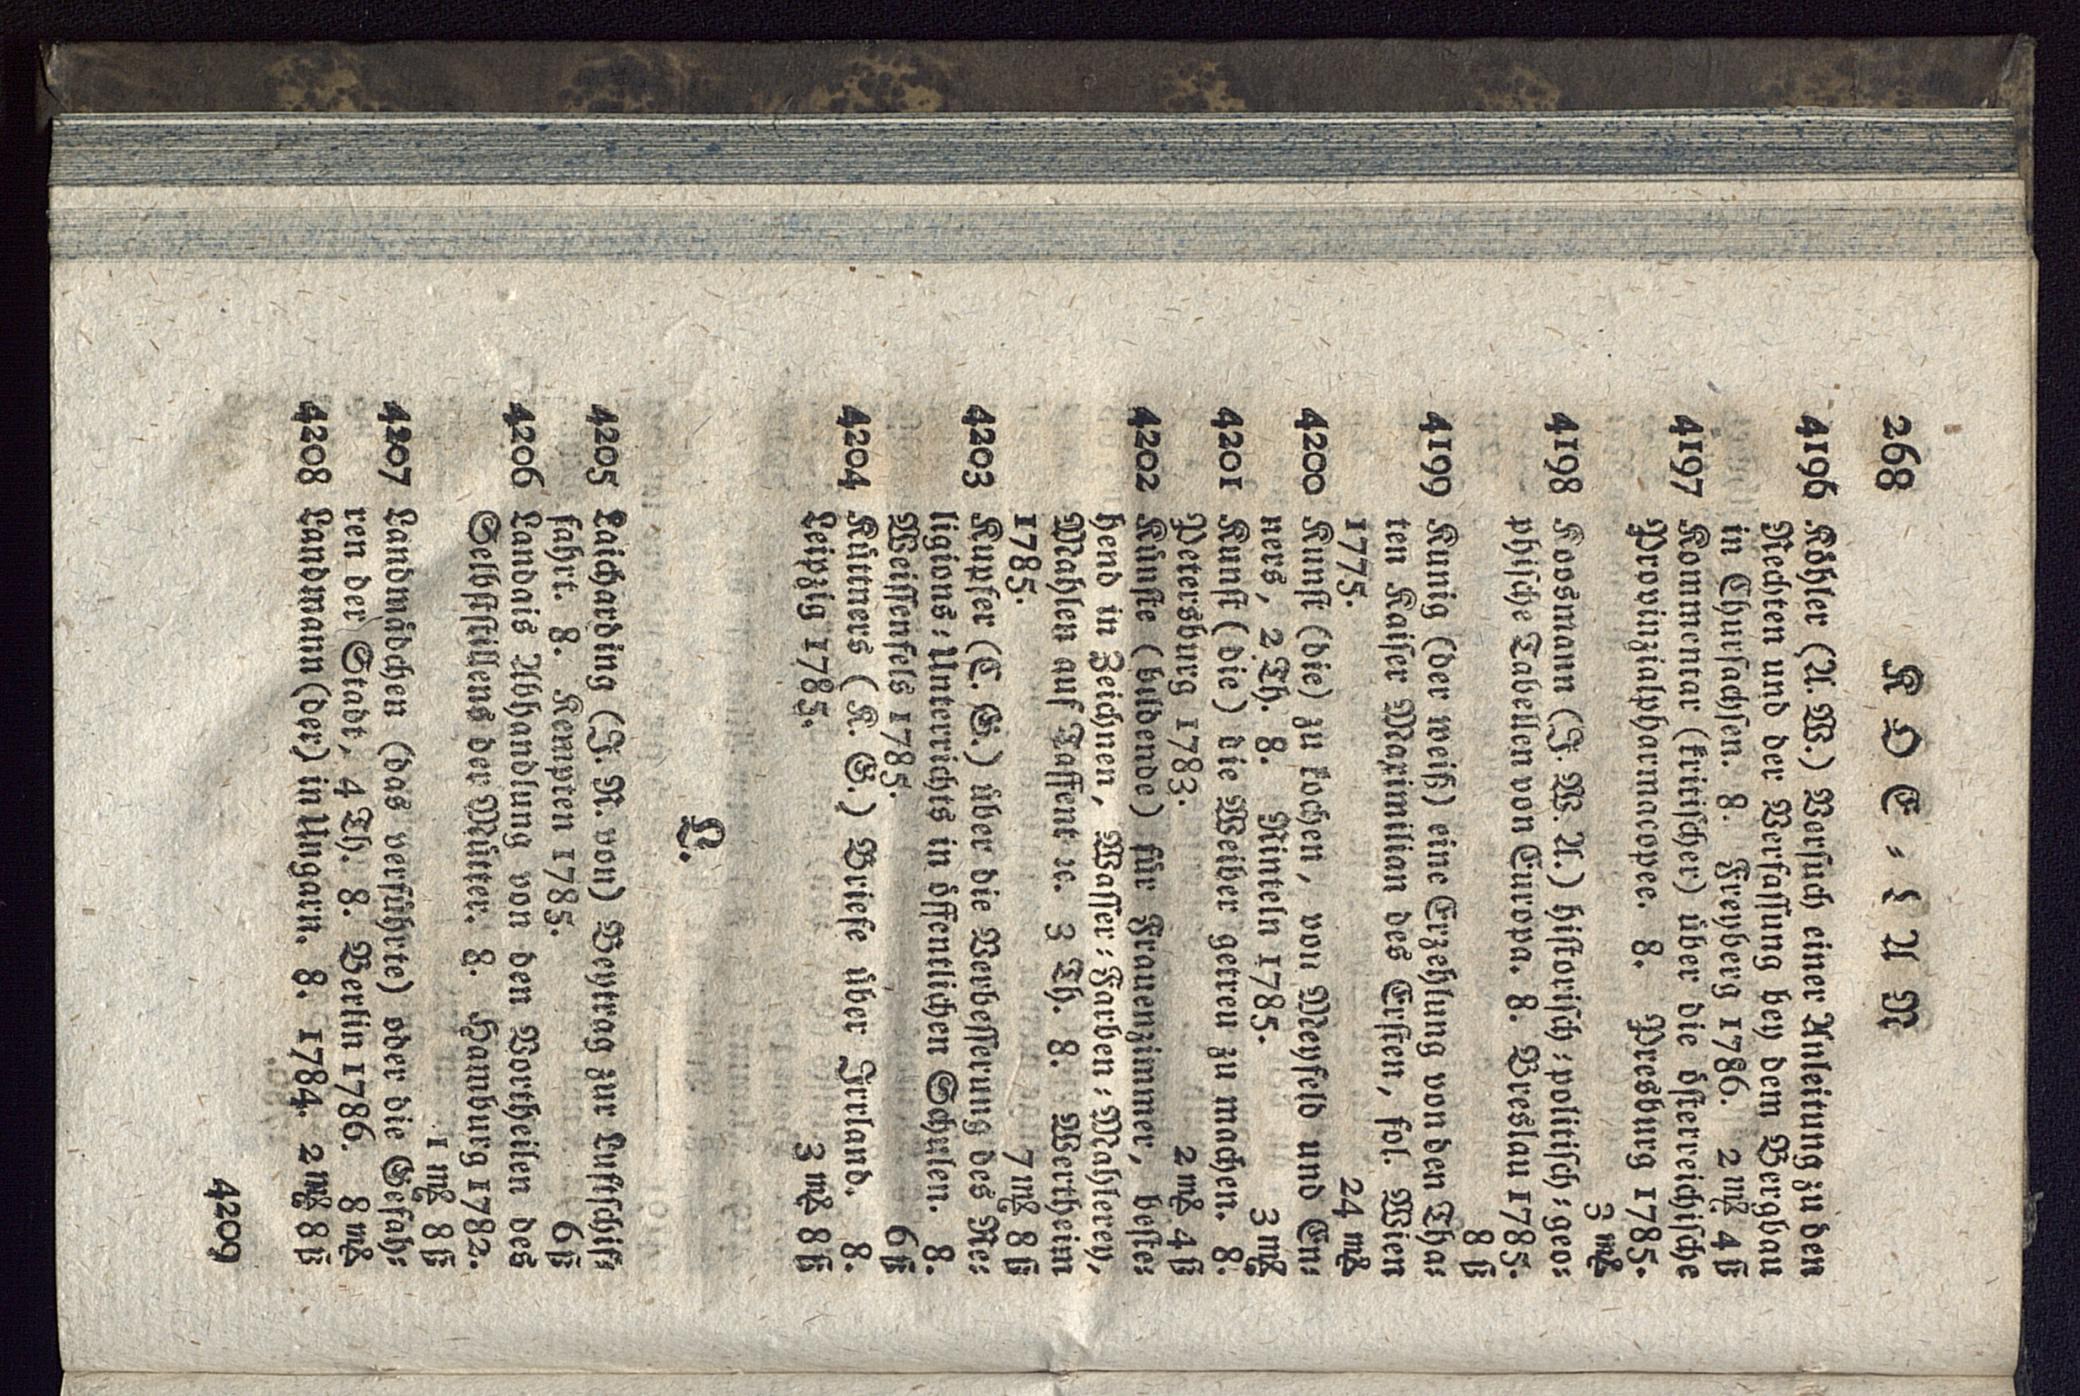 268 K O E - L A N
4196 Köhler (A. W.) Versuch einer Anleitung zu den
Rechten und der Verfassung bey dem Bergbau
in Chursachsen. 8. Freyberg 1786. 2 mß 4 ß
4197 Kommentar (kritischer) über die österreichische
Provinzialpharmacopee. 8. Presburg 1785.
3 mß
4198 Koosmann (J. W. A.) historisch-politisch-geo-
phische Tabellen von Europa. 8. Breslau 1785.
8 ß
4199 Kunig (der weiß) eine Erzehlung von den Tha-
ten Kaiser Maximilian des Ersten, fol. Wien
1775. 24 mß
4200 Kunst (die) zu kochen, von Meyfeld und En-
ners, 2 Th. 8. Rinteln 1785. 3 mß
4201 Kunst (die) die Weiber getreu zu machen. 8.
Petersburg 1783. 2 mß 4 ß
4202 Künste (bildende) für Frauenzimmer, beste-
hend in Zeichnen, Wasser-Farben-Mahlerey,
Mahlen auf Taffent ꝛc. 3 Th. 8. Wertheim
1785. 7 mß 8 ß
4203 Kupfer (C. G.) über die Verbesserung des Re-
ligions-Unterrichts in öffentlichen Schulen. 8.
Weissenfels 1785. 6 ß
4204 Küttners (K. G.) Briefe über Irrland. 8.
Leipzig 1785. 3 mß 8 ß
L.
4205 Laicharding (J. N. von) Beytrag zur Luftschif-
fahrt. 8. Kempten 1785. 6 ß
4206 Landais Abhandlung von den Vortheilen des
Selbststillens der Mütter. 8. Hamburg 1782.
1 mß 8 ß
4207 Landmädchen (das verführte) oder die Gefah-
ren der Stadt, 4 Th. 8. Berlin 1786. 8 mß
4208 Landmann (der) in Ungarn. 8. 1784. 2 mß 8 ß
4209